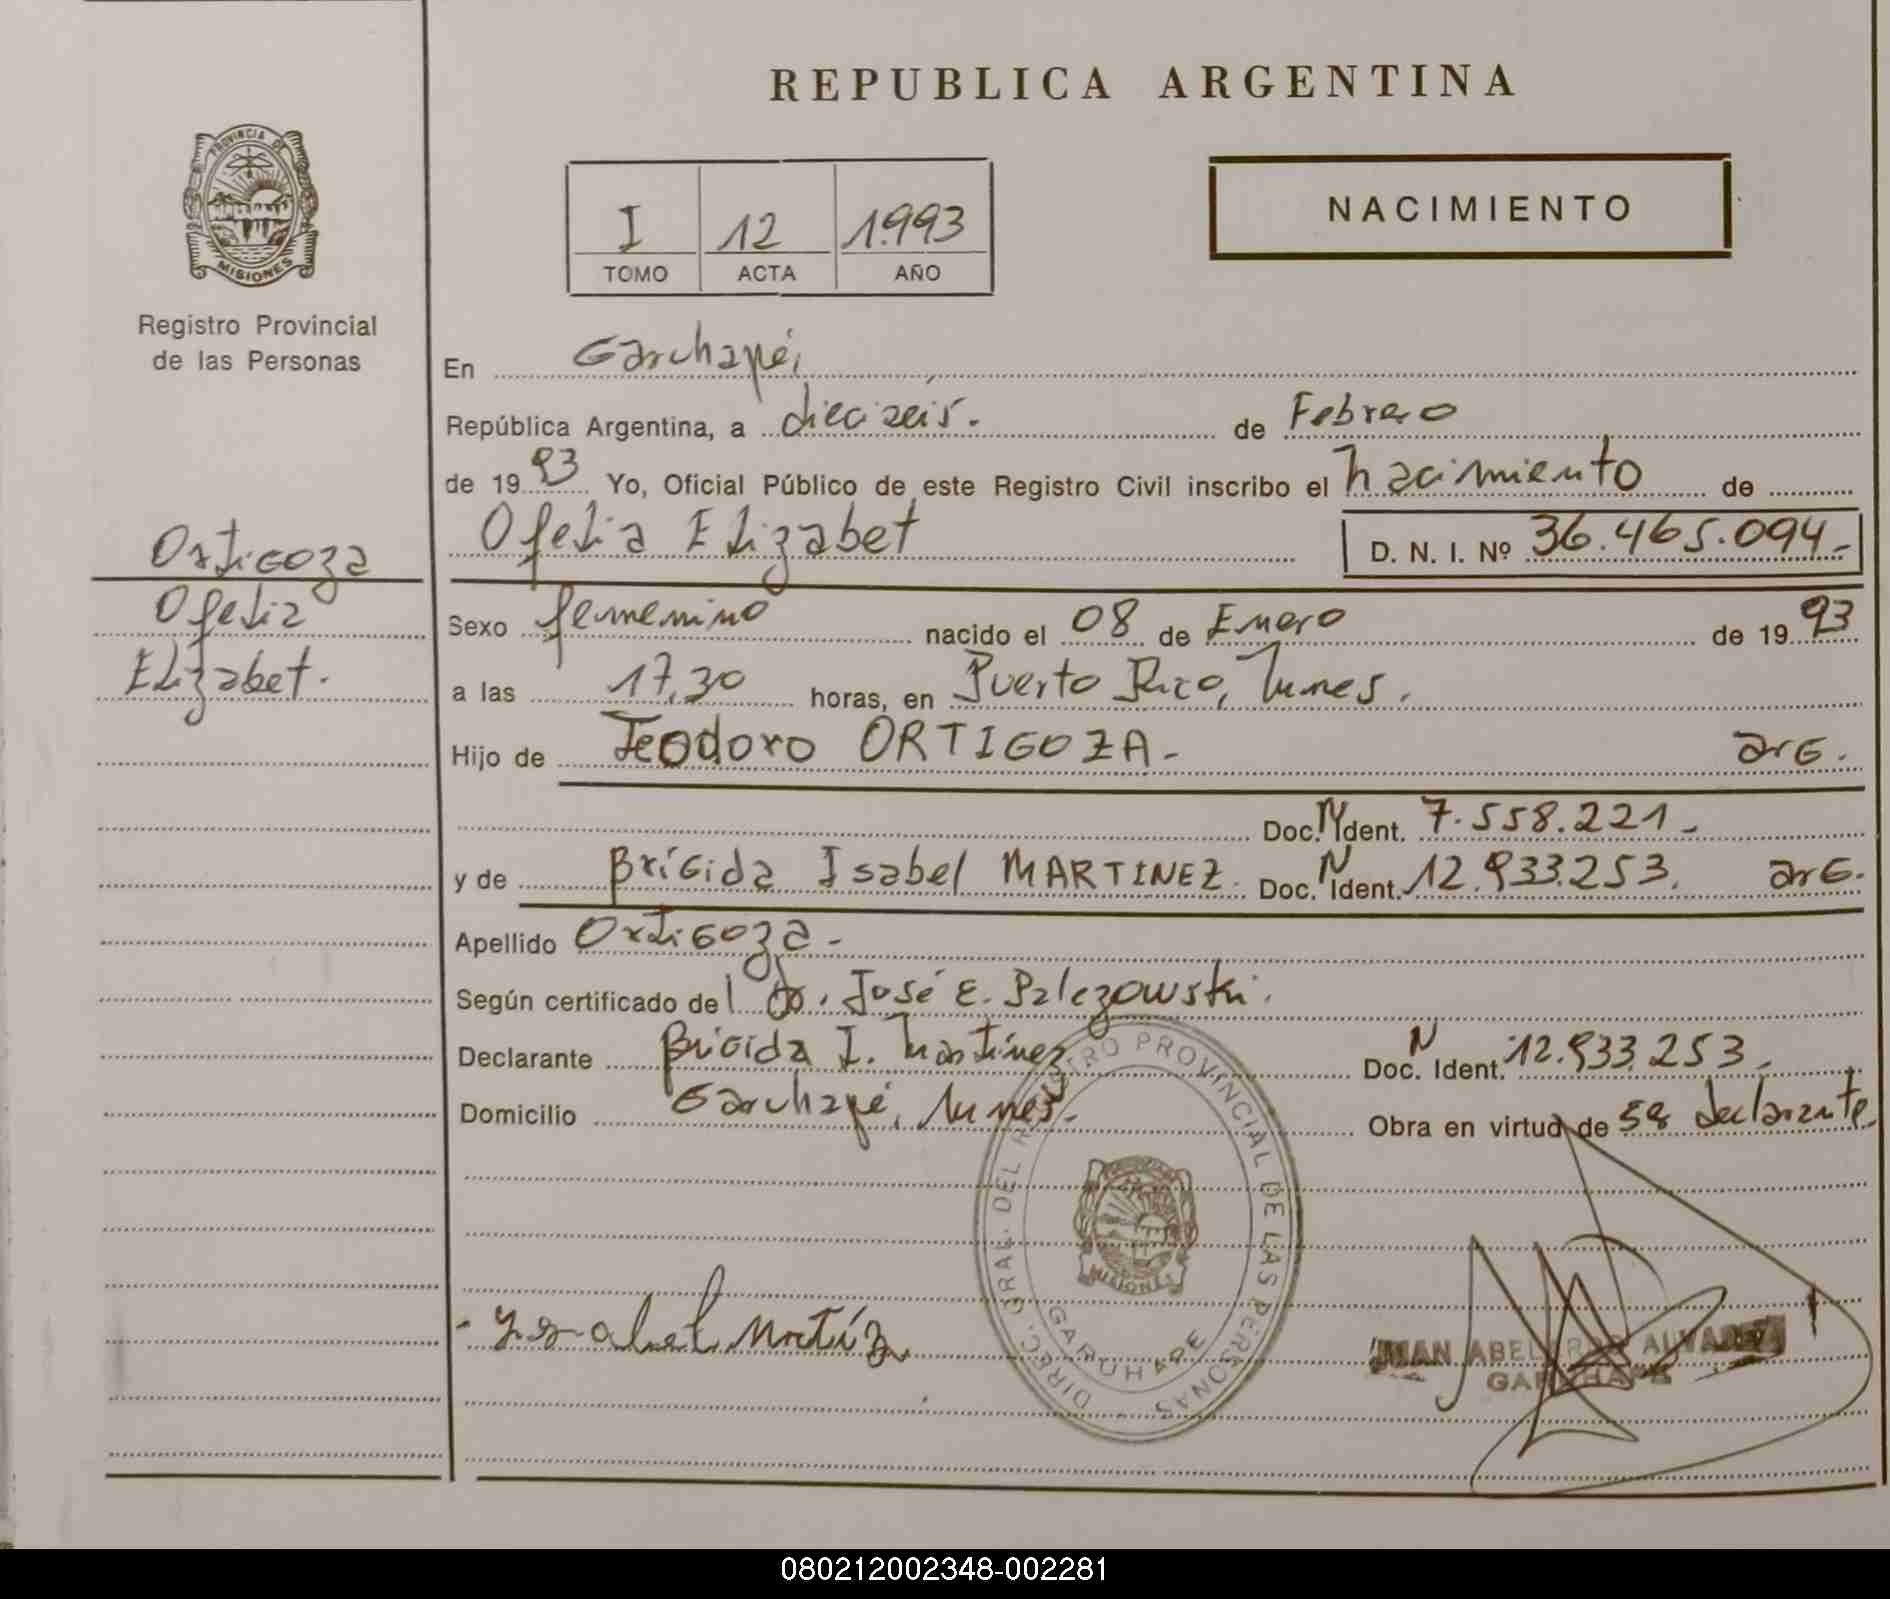 REPUBLICA ARGENTINA
PROVINCIA DE
MISIONES
Registro Provincial
de las Personas
I 12 1.993
TOMO ACTA AÑO
NACIMIENTO
En Garuhapé,
República Argentina, a dieciseis. de Febrero
de 19 93 Yo, Oficial Público de este Registro Civil inscribo el nacimiento de
Ofelia Elizabet D. N. I. Nº 36.465.094-
Ortigoza
Ofelia
Elizabet.
Sexo femenino nacido el 08 de Enero de 19 93
a las 17,30 horas, en Puerto Rico, lunes.
Hijo de Teodoro ORTIGOZA- arG.
Doc. N Ident. 7.558.221-
y de Brígida Isabel MARTINEZ. Doc. N Ident. 12.933.253. arG.
Apellido Ortigoza-
Según certificado del Dr. José E. Palczowski.
Declarante Brígida I. Martínez Doc. N Ident. 12.933.253-
Domicilio Garuhapé, lunes. Obra en virtud de ser declarante
DIREC. GRAL. DEL REGISTRO PROVINCIAL DE LAS PERSONAS
MISIONES
GARUHAPE
JUAN ABELARDO ALVAREZ
GARUHAPE
080212002348-002281